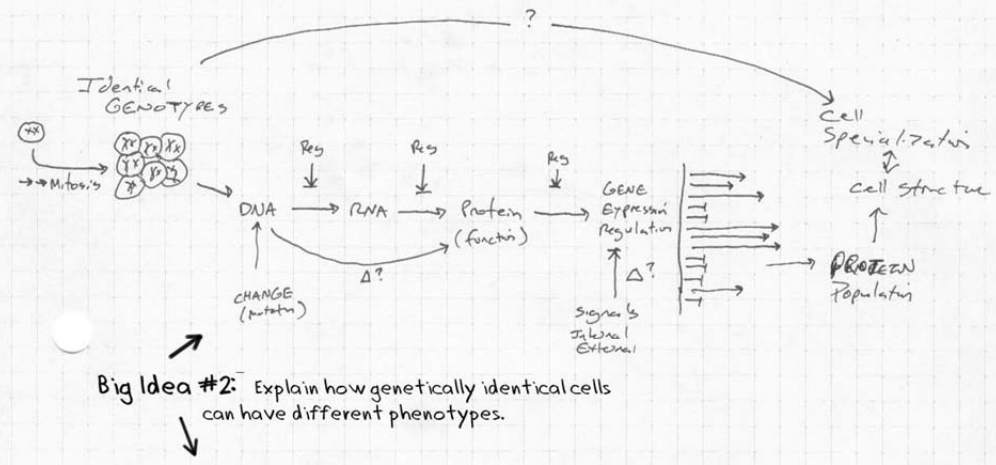 ?
Identical
GENOTYPES
xx
→→ Mitosis
xx xx xx
xx xx xx
Reg
Reg
Reg
DNA → RNA → Protein
(function)
GENE
Expression
Regulation
Δ?
Δ?
CHANGE
(mutation)
Signals
Internal
External
Cell
Specialization
Cell Structure
PROTEIN
Population
Big Idea #2: Explain how genetically identical cells
can have different phenotypes.